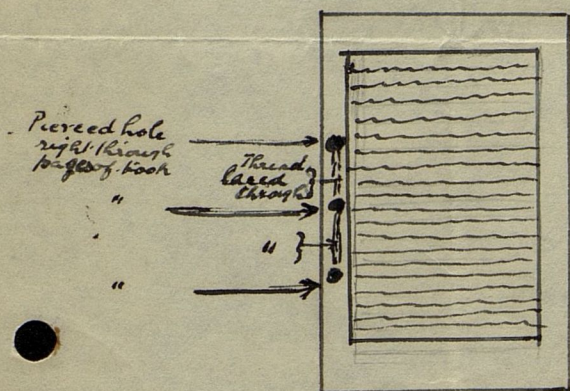 Pierced hole
right through
pages of book
Thread
laced
through
"
"
"